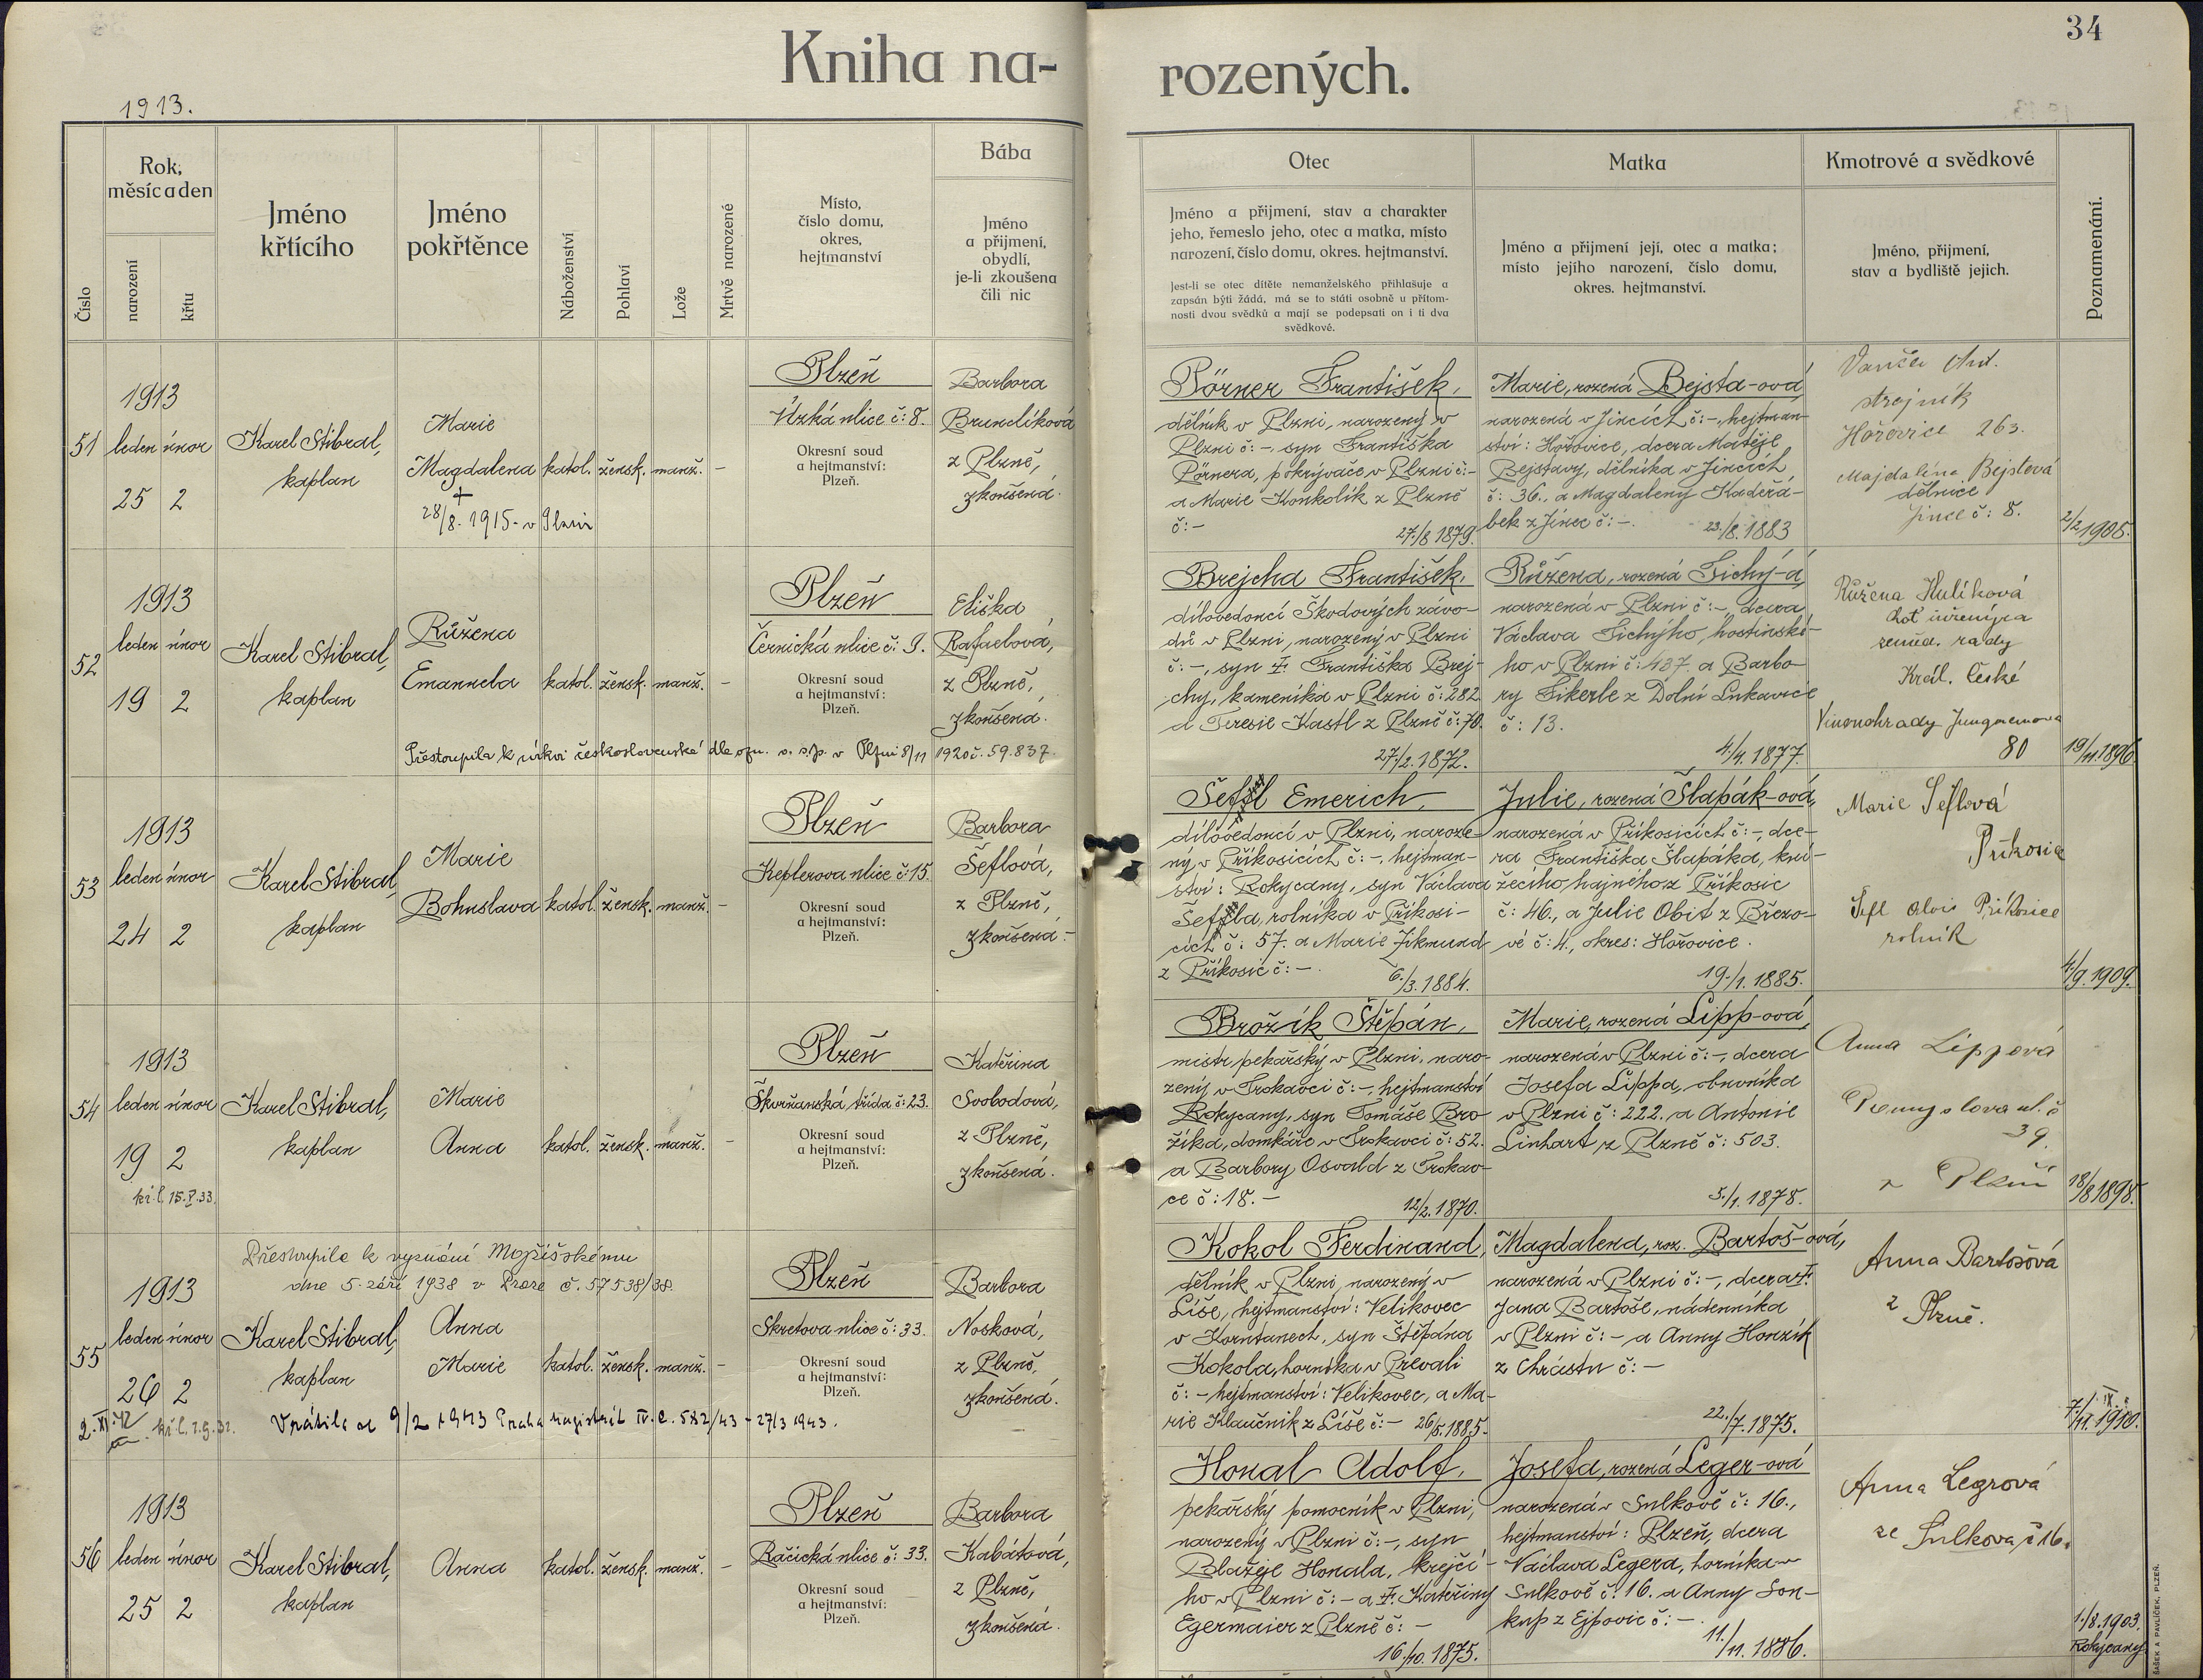 34
Kniha na-
rozených.
1913.
Číslo
Rok,
měsíc a den
narození
křtu
Jméno
křtícího
Jméno
pokřtěnce
Náboženství
Pohlaví
Lože
Mrtvě narozené
Místo,
číslo domu,
okres,
hejtmanství
Bába
Jméno
a příjmení,
obydlí,
je-li zkoušena
čili nic
Otec
Jméno a příjmení, stav a charakter
jeho, řemeslo jeho, otec a matka, místo
narození, číslo domu, okres. hejtmanství.
Jest-li se otec dítěte nemanželského přihlašuje a
zapsán býti žádá, má se to státi osobně u přítom-
nosti dvou svědků a mají se podepsati on i ti dva
svědkové.
Matka
Jméno a příjmení její, otec a matka;
místo jejího narození, číslo domu,
okres. hejtmanství.
Kmotrové a svědkové
Jméno, příjmení,
stav a bydliště jejich.
Poznamenání.
51
1913
leden únor
25 2
Karel Stibral,
kaplan
Marie
Magdalena
+
28/8. 1915. v Plzni
katol. žensk. manž. -
Plzeň
Úzká ulice č: 8.
Okresní soud
a hejtmanství:
Plzeň.
Barbora
Brunclíková
z Plzně,
zkoušená.
Pörner František,
dělník v Plzni, narozený v
Plzni č: -, syn Františka
Pörnera, pokrývače v Plzni č: -
a Marie Konkolík z Plzně
č: -
27./8 1879.
Marie, rozená Bejsta-ová,
narozená v Jincích č: -, hejtman-
ství: Hořovice, dcera Matěje
Bejstavy, dělníka v Jincích
č: 36., a Magdaleny Kadeřá-
bek z Jinec č: -.
23./8. 1883
Vaněča Ant.
strojník
Hořovice 263.
Majdalina Bejstová
dělnice
Jince č: 8.
2/2 1905.
52
1913
leden únor
19 2
Karel Stibral,
kaplan
Růžena
Emanuela
katol. žensk. manž. -
Plzeň
Černická ulice č: 9.
Okresní soud
a hejtmanství:
Plzeň.
Eliška
Rafaelová,
z Plzně,
zkoušená.
Přestoupila k církvi československé dle ozn. o. s. p. v Plzni 8/11 1920 č. 59.837.
Brejcha František,
dílovedoucí Škodových závo-
dů v Plzni, narozený v Plzni
č: -, syn †. Františka Brej-
chy, kameníka v Plzni č: 282
a Teresie Kastl z Plzně č: 70.
27./2. 1872.
Růžena, rozená Tichý-á,
narozená v Plzni č: -, dcera
Václava Tichýho, hostinské-
ho v Plzni č: 487. a Barbo-
ry Fikerle z Dolní Lukavice
č: 13.
4./4. 1877.
Růžena Kulíková
choť inženýra
zeměd. rady
Král. České
Vinohrady Jungmannova
80
19/11. 1896.
53
1913
leden únor
24 2
Karel Stibral,
kaplan
Marie
Bohuslava
katol. žensk. manž. -
Plzeň
Keplerova ulice č: 15.
Okresní soud
a hejtmanství:
Plzeň.
Barbora
Šeflová,
z Plzně,
zkoušená.
Šefl Emerich,
dílovedoucí v Plzni, naroze-
ný v Příkosicích č: -, hejtman-
ství: Rokycany, syn Václava
Šefla, rolníka v Příkosi-
cích č: 57. a Marie Zikmund
z Příkosic č: -.
6./3. 1884.
Julie, rozená Šlapák-ová,
narozená v Příkosicích č: -, dce-
ra Františka Šlapáka, kní-
žecího hajného z Příkosic
č: 46., a Julie Obit z Březo-
vé č: 4., okres: Hořovice.
19./1. 1885.
Marie Šeflová
Příkosice
Šefl Alois Příkosice
rolník
4./9. 1909.
54
1913
leden únor
19 2
kř. l. 15.V.33.
Karel Stibral,
kaplan
Marie
Anna
katol. žensk. manž. -
Plzeň
Škvrňanská třída č: 23.
Okresní soud
a hejtmanství:
Plzeň.
Kateřina
Svobodová,
z Plzně,
zkoušená.
Brožík Štěpán,
mistr pekařský v Plzni, naro-
zený v Trokavci č: -, hejtmanství
Rokycany, syn Tomáše Bro-
žíka, domkáře v Trokavci č: 52.
a Barbory Osvald z Trokav-
ce č: 18. -
12/2. 1870.
Marie, rozená Lipp-ová,
narozená v Plzni č: -, dcera
Josefa Lippa, obuvníka
v Plzni č: 222. a Antonie
Linhart z Plzně č: 503.
5./1. 1878.
Anna Lippová
Přemyslova ul. č
39.
v Plzni
18/8 1898.
55
Přestoupila k vyznání Mojžíšskému
dne 5. září 1938 v Praze č. 57538/38.
1913
leden únor
26 2
Karel Stibral,
kaplan
Anna
Marie
katol. žensk. manž. -
Plzeň
Skretova ulice č: 33.
Okresní soud
a hejtmanství:
Plzeň.
Barbora
Nosková,
z Plzně,
zkoušená.
2. XI. 42
kř. l. 2.9.32.
Vrátila se 9/2 1943 Praha magistrát IV. č. 582/43 - 27/3 1943.
Kokol Ferdinand,
dělník v Plzni, narozený v
Líše, hejtmanství: Velikovec
v Korutanech, syn Štěpána
Kokola, horníka v Prevali
č: - hejtmanství: Velikovec, a Ma-
rie Klaučnik z Líše č: - 26/5. 1885.
Magdalena, roz. Bartoš-ová,
narozená v Plzni č: -, dcera †.
Jana Bartoše, nádenníka
v Plzni č: - a Anny Honzík
z Chrástu č: -
22./7. 1875.
Anna Bartošová
z Plzně.
7./IX. 1910.
56
1913
leden únor
25 2
Karel Stibral,
kaplan
Anna
katol. žensk. manž. -
Plzeň
Račická ulice č: 33.
Okresní soud
a hejtmanství:
Plzeň.
Barbora
Kabátová,
z Plzně,
zkoušená.
Honal Adolf,
pekařský pomocník v Plzni,
narozený v Plzni č: -, syn
Blažeje Honala, krejčí-
ho v Plzni č: - a †. Kateřiny
Egermaier z Plzně č: -
16./10. 1875.
Josefa, rozená Leger-ová
narozená v Sulkově č: 16.,
hejtmanství: Plzeň, dcera
Václava Legera, horníka v
Sulkově č: 16. a Anny Sou-
kup z Ejpovic č: -.
11./11. 1886.
Anna Legrová
ze Sulkova, č 16.
1./8. 1903.
Rokycany
ŠAŠEK A PAVLÍČEK, PLZEŇ.